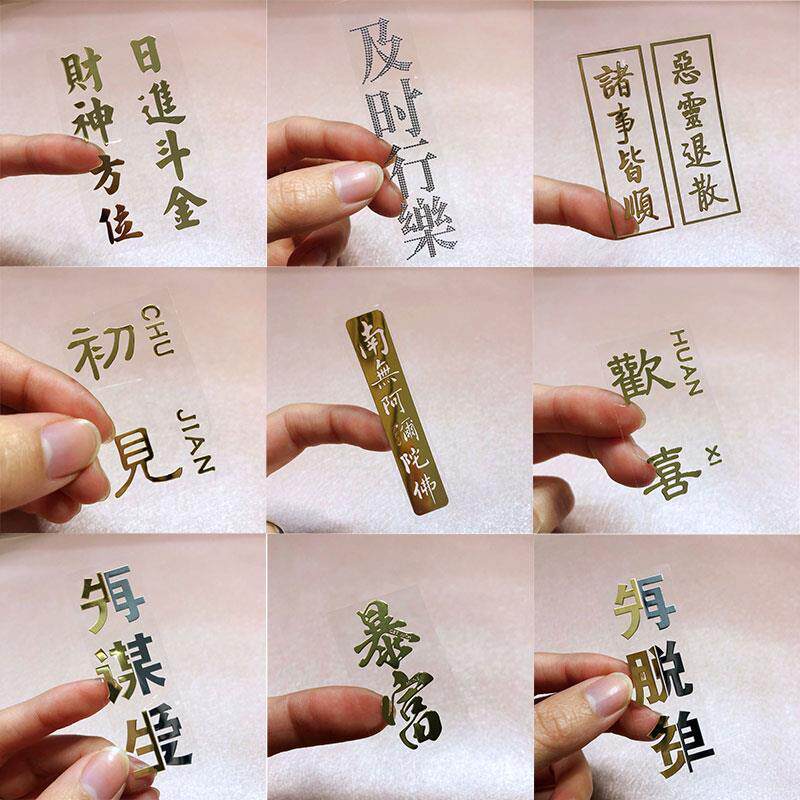 日進斗金
財神方位
及时行樂
惡靈退散
諸事皆順
初見
CHU JIAN
南無阿彌陀佛
歡喜
HUAN XI
先谋生
再谋爱
暴富
先脱贫
再脱单